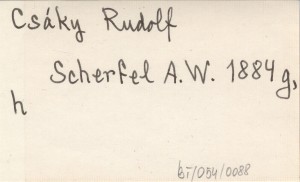 Csáky Rudolf
Scherfel A.W. 1884 g,
h
BT/054/0088